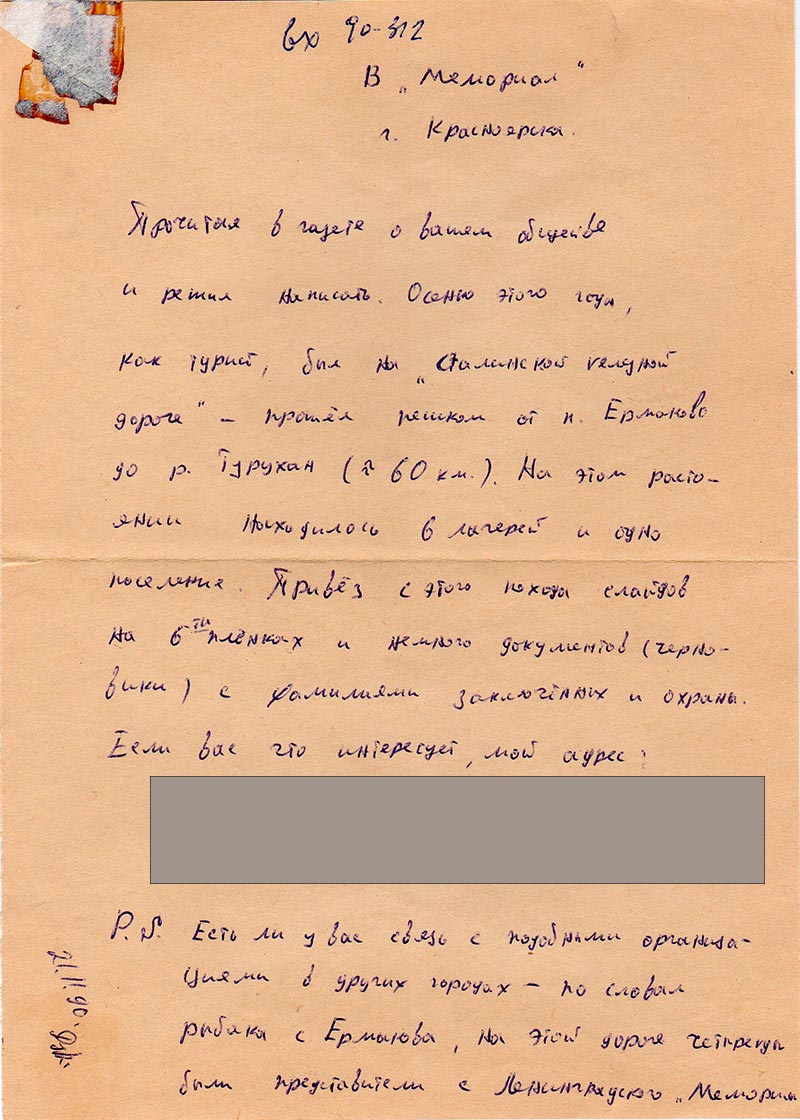 вх 90-312
В „Мемориал"
г. Красноярска.
Прочитал в газете о вашем обществе
и решил написать. Осенью этого года,
как турист, был на „Сталинской железной
дороге" – прошёл пешком от п. Ермаково
до р. Турухан (≈ 60 км.). На этом расто-
янии находилось 6 лагерей и одно
поселение. Привёз с этого похода слайдов
на 6-ти плёнках и немного документов (черно-
вики) с фамилиями заключённых и охраны.
Если вас что интересует, мой адрес:
P.S. Есть ли у вас связь с подобными организа-
циями в других городах – по словам
рыбака с Ермакова, на этой дороге четырежды
были представители с Ленинградского „Мемориал
21.11.90.